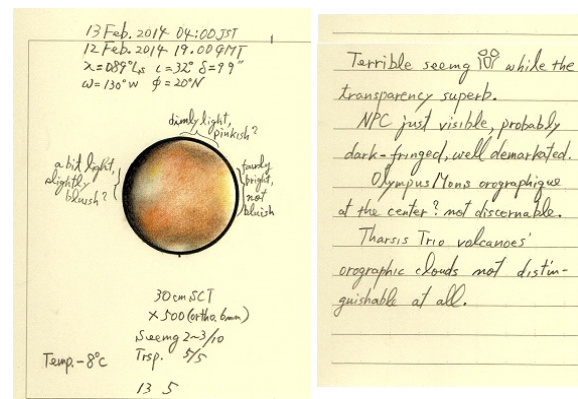 13 Feb. 2014 04:00 JST
12 Feb. 2014 19.00 GMT
λ=089°Ls ι=32° δ=9.9"
ω=130°W φ=20°N
dimly light,
pinkish?
a bit light,
slightly
bluish?
fairly
bright,
not
bluish
30cm SCT
×500 (ortho. 6mm)
Seeing 2~3/10
Trsp. 5/5
Temp. -8°C
13 5
Terrible seeing while the
transparency superb.
NPC just visible, probably
dark-fringed, well demarkated.
Olympus Mons orographique
at the center? not discernable.
Tharsis Trio volcanoes'
orographic clouds not distin-
guishable at all.